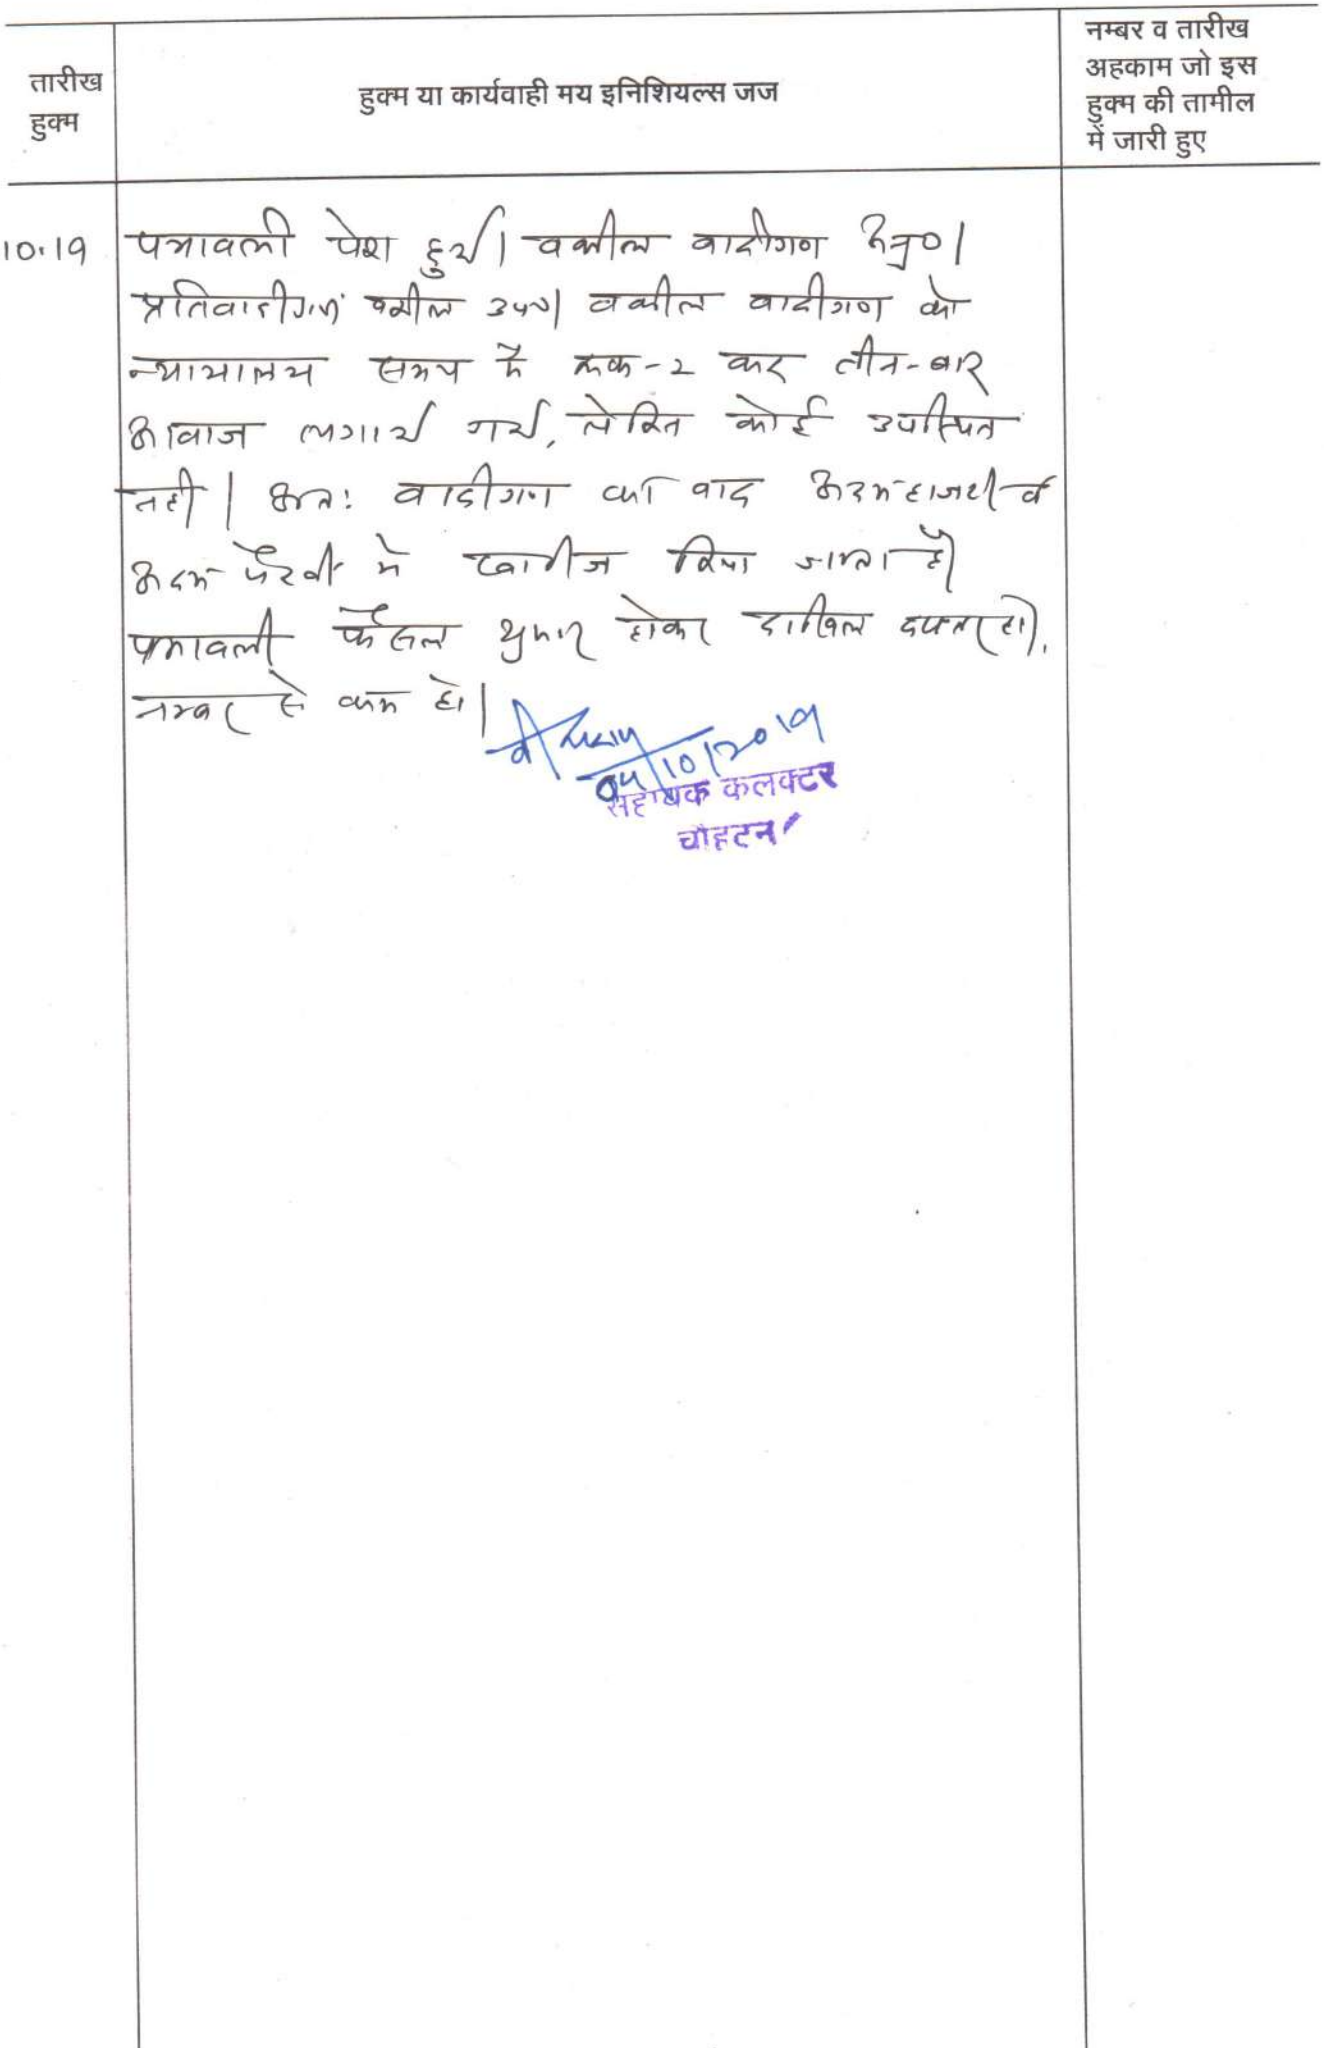 तारीख
हुक्म
हुक्म या कार्यवाही मय इनिशियल्स जज
नम्बर व तारीख
अहकाम जो इस
हुक्म की तामील
में जारी हुए
10.19
पत्रावली पेश हुई। वकील वादीगण अनु०।
प्रतिवादीगण वकील उप०। वकील वादीगण को
न्यायालय समय में रूक-२ कर तीन-बार
आवाज लगाई गई, लेकिन कोई उपस्थित
नही। अतः वादीगण का वाद अदम हाजरी व
अदम पैरवी में खारीज किया जाता है।
पत्रावली फैसल शुमार होकर दाखिल दफ्तर हो,
नम्बर से कम हो।
04/10/2019
सहायक कलक्टर
चौहटन